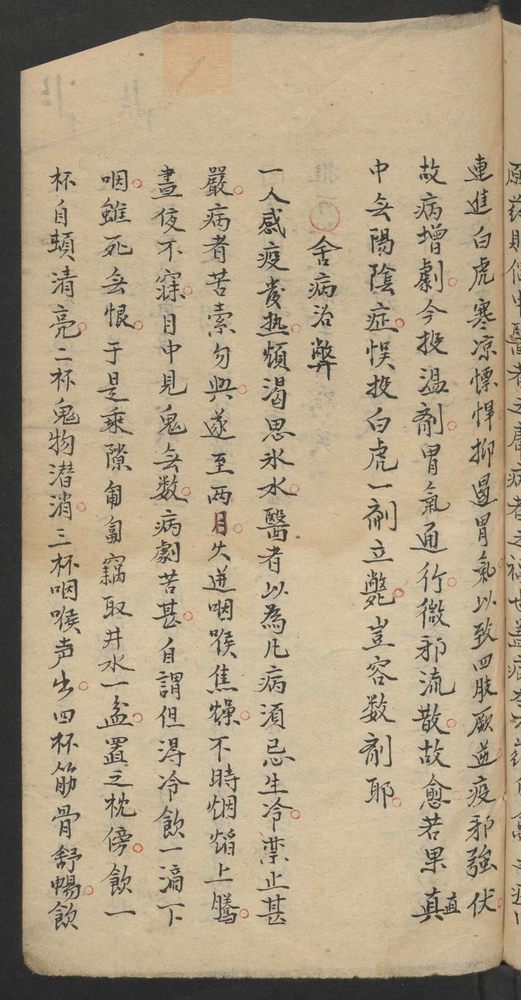 連進白虎寒凉慓悍抑遏胃氣以致四肢厥逆疫邪強伏
故病增劇今投温劑胃氣通行微邪流散故愈若果真直
中无陽陰症悮投白虎一劑立斃豈容数劑耶
舍病治弊
一人感疫發热煩渴思氷水醫者以為凡病須忌生冷禁止甚
嚴病者苦索勿與遂至两目久迸咽喉焦燥不時烟焰上騰
晝夜不寐目中見鬼无数病劇苦甚自謂但得冷飲一滴下
咽雖死无恨于是乘隙匍匐竊取井水一盆置之枕傍飲一
杯自頓清亮二杯鬼物潜消三杯咽喉声出四杯筋骨舒暢飲